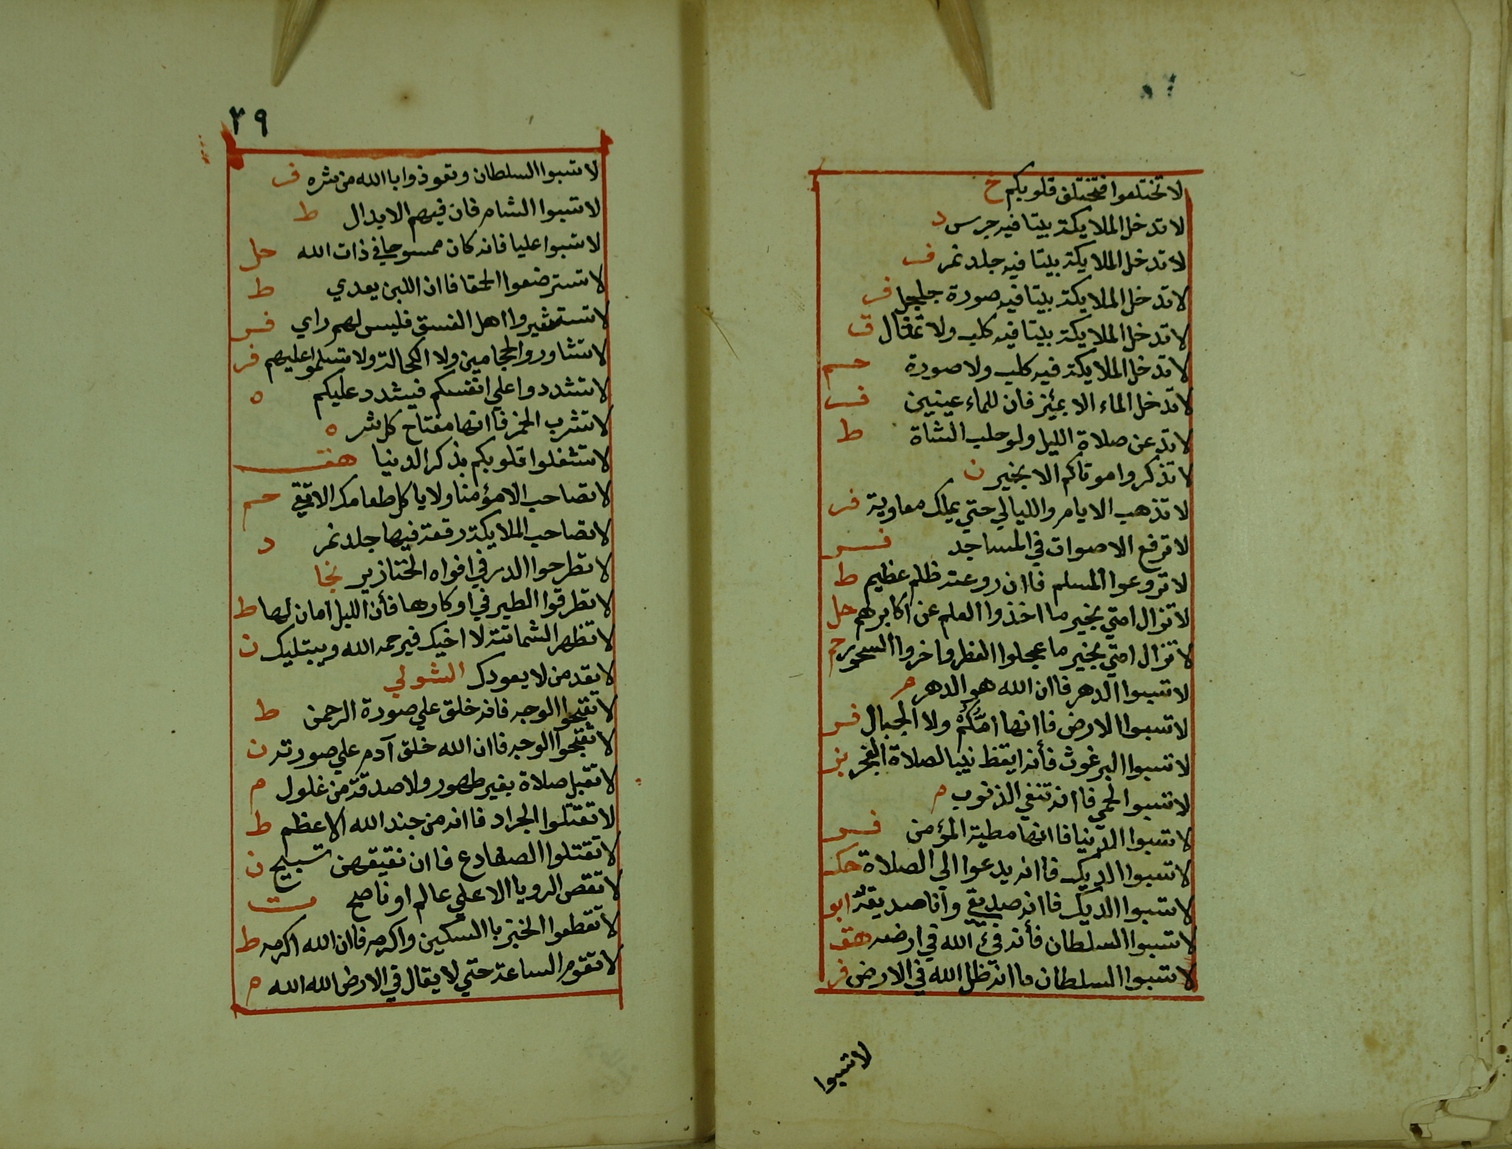 لا تختلفوا فتختلف قلوبكم خ
لا تدخل الملايكة بيتا فيه جرس د
لا تدخل الملايكة بيتا فيه جلد نمر ف
لا تدخل الملايكة بيتا فيه صورة جلجل ف
لا تدخل الملايكة بيتا فيه كلب ولا تمثال ف
لا تدخل الملايكة فيه كلب ولا صورة حم
لا تدخل الماء الا بميزر فان للماء عينين ف
لا تدعن صلاة الليل ولو حلب الشاة ط
لا تذكروا موتاكم الا بخير ن
لا تذهب الايام والليالي حتي يملك معاوية فر
لا ترفع الاصوات في المساجد فر
لا تروعوا المسلم فاان روعته ظلم عظيم ط
لا تزال امتي بخير ما اخذوا العلم عن اكابرهم حل
لا تزال امتي بخير ما عجلوا الفطر واخروا السحور حم
لا تسبوا الدهر فاان الله هو الدهر م
لا تسبوا الارض فاانها امكم ولا الجبال فر
لا تسبوا البرغوث فأنه ايقظ نبيا لصلاة الفجر بز
لا تسبوا الحمي فاانه تنفي الذنوب م
لا تسبوا الدنيا فاانها مطية المؤمن فر
لا تسبوا الديك فاانه يدعوا الي الصلاة حك
لا تسبوا الديك فاانه صديقي وأنا صديقه ابو
لا تسبوا السلطان فأنه فيء الله في ارضه هق
لا تسبوا السلطان فاانه ظل الله في الارض فر
لا تسبوا
٣٩
لا تسبوا السلطان وتعوذوا باالله من شره ف
لا تسبوا الشام فان فيهم الابدال ط
لا تسبوا عليا فانه كان ممسوحا في ذات الله حل
لا تسترضعوا الحمقا فاان اللبن يعدي ط
لا تستشيروا اهل الفسق فليس لهم راي فر
لا تشاوروا الحجامين ولا الكحالة ولا تسلموا عليهم فر
لا تشددوا علي انفسكم فيشدد عليكم ه
لا تشرب الخمر فاانها مفتاح كل شر ه
لا تشغلوا قلوبكم بذكر الدنيا هق
لا تصاحب الا مؤمنا ولا ياكل طعامك الا تقي حم
لا تصاحب الملايكة رفقة فيها جلد نمر د
لا تطرحوا الدر في افواه الخنازير نجا
لا تطرقوا الطير في اوكارها فأن الليل امان لها ط
لا تظهر الشماتة لا اخيك فيرحمه الله ويبتليك ن
لا تعد من لا يعودك الشولي
لا تقبحوا الوجه فانه خلق علي صورة الرحمن ط
لا تقبحوا الوجه فاان الله خلق آدم علي صورته ن
لا تقبل صلاة بغير طهور ولا صدقة من غلول م
لا تقتلوا الجراد فاانه من جند الله الاعظم ط
لا تقتلوا الضفادع فاان نقيقهن تسبيح ن
لا تقص الرويا الا علي عالم او ناصح ت
لا تقطعوا الخبز باالسكين واكرموه فاان الله اكرمه ط
لا تقوم الساعة حتي لا يقال في الارض الله الله م